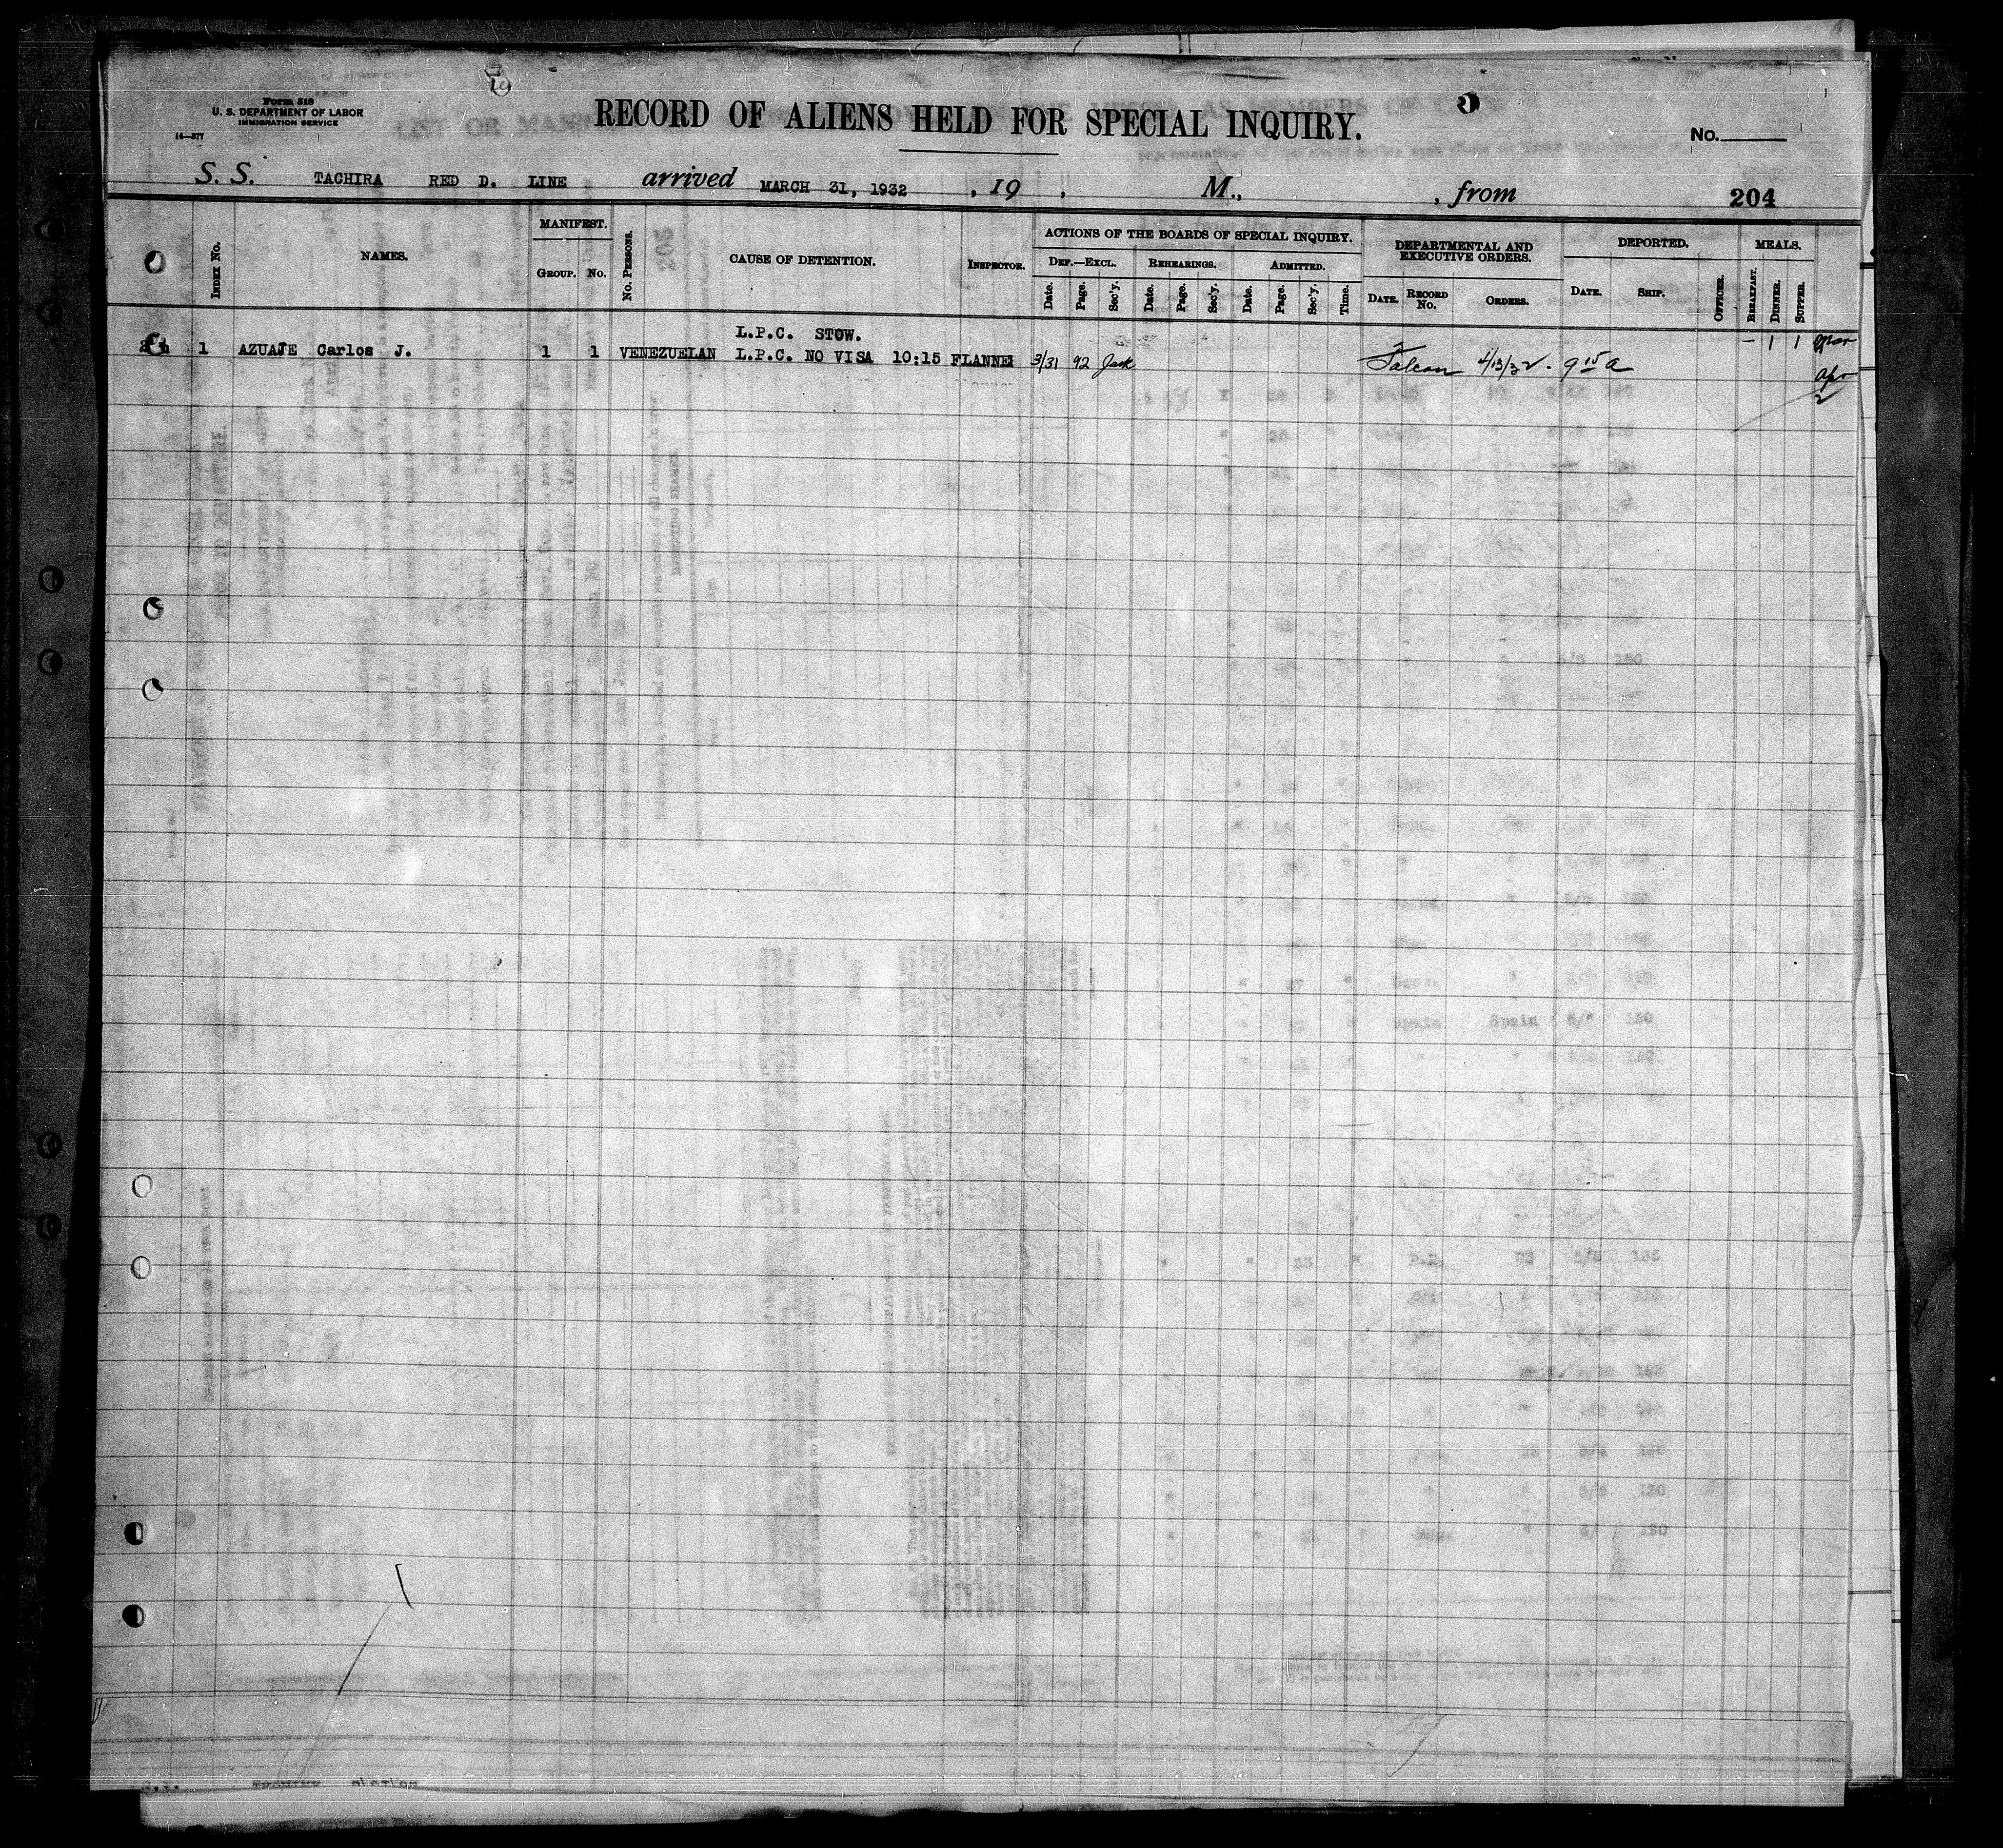 Form 518
U. S. DEPARTMENT OF LABOR
IMMIGRATION SERVICE
14—577
RECORD OF ALIENS HELD FOR SPECIAL INQUIRY.
No.
S. S. TACHIRA RED D. LINE arrived MARCH 31, 1932 , 19 , M., , from 204
INDEX No.
NAMES.
MANIFEST.
GROUP. No.
No. PERSONS.
CAUSE OF DETENTION.
INSPECTOR.
ACTIONS OF THE BOARDS OF SPECIAL INQUIRY.
DEF.—EXCL. REHEARINGS. ADMITTED.
Date. Page. Sec'y. Date. Page. Sec'y. Date. Page. Sec'y. Time.
DEPARTMENTAL AND
EXECUTIVE ORDERS.
DATE. RECORD No. ORDERS.
DEPORTED.
DATE. SHIP. OFFICER.
MEALS.
BREAKFAST. DINNER. SUPPER.
L.P.C. STOW.
1 AZUAJE Carlos J. 1 1 VENEZUELAN L.P.C. NO VISA 10:15 FLANNE 3/31 92 Falcon 4/13/32. 9 15 a – 1 1